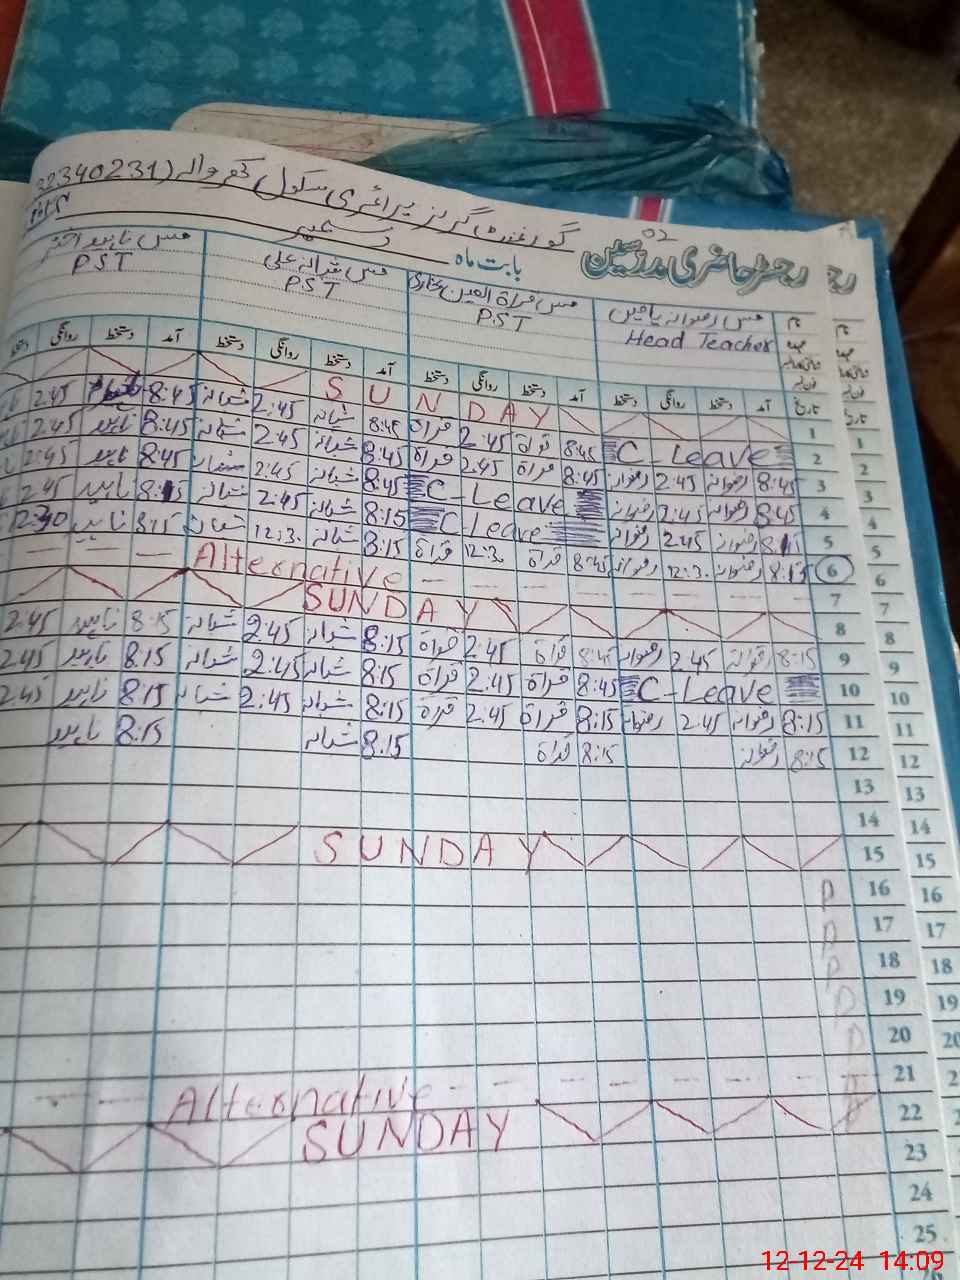 گورنمنٹ گرلز پرائمری سکول (32340231
رجسٹر حاضری مدرسین
بابت ماہ دسمبر
مس رضوانہ یاسمین مس قراۃ العین بخاری مس شبانہ علی مس ناہید اختر
Head Teacher PST PST PST
تاریخ آمد دستخط روانگی دستخط آمد دستخط روانگی دستخط آمد دستخط روانگی دستخط آمد دستخط روانگی دستخط
1 SUNDAY
2 C-Leave 8:45 قراۃ 2:45 قراۃ 8:45 شبانہ 2:45 شبانہ 8:45 2:45
3 8:45 رضوانہ 2:45 رضوانہ 8:45 قراۃ 2:45 قراۃ 8:45 شبانہ 2:45 شبانہ 8:45 ناہید 2:45
4 8:45 رضوانہ 2:45 رضوانہ C-Leave 8:45 شبانہ 2:45 شبانہ 8:45 ناہید 2:45
5 رضوانہ 2:45 رضوانہ C-Leave 8:15 شبانہ 2:45 شبانہ 8:15 ناہید 2:45
6 8:15 رضوانہ 12:3. رضوانہ 8:45 قراۃ 12:3. قراۃ 8:15 شبانہ 12:3. شبانہ 8:15 ناہید
7 Alternative
8 SUNDAY
9 8:15 رضوانہ 2:45 رضوانہ 8:45 قراۃ 2:45 قراۃ 8:15 شبانہ 2:45 شبانہ 8:15 ناہید 2:45
10 C-Leave 8:45 قراۃ 2:45 قراۃ 8:15 شبانہ 2:45 شبانہ 8:15 ناہید 2:45
11 8:15 رضوانہ 2:45 رضوانہ 8:15 قراۃ 2:45 قراۃ 8:15 شبانہ 2:45 شبانہ 8:15 ناہید 2:45
12 8:15 رضوانہ 8:15 قراۃ 8:15 شبانہ 8:15 ناہید
13
14
15 SUNDAY
16
17
18
19
20
21
22 Alternative
23 SUNDAY
24
25
12-12-24 14:09